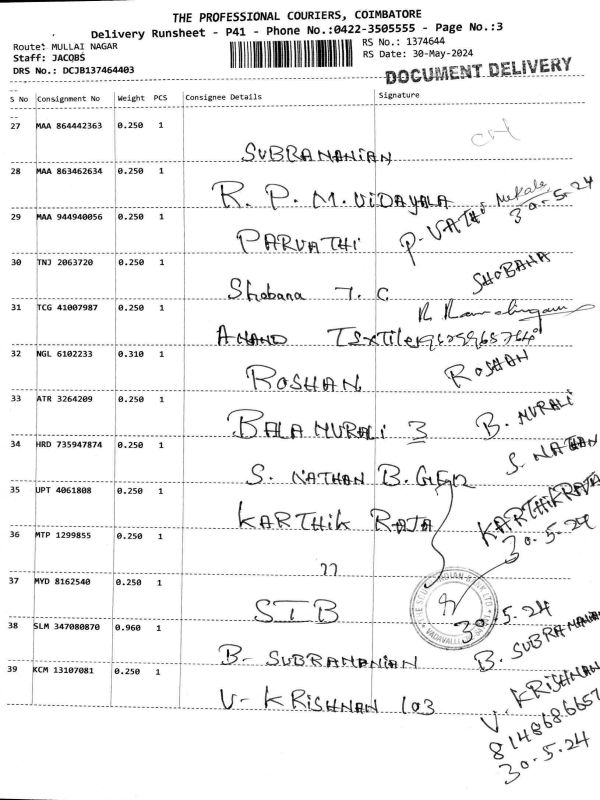 THE PROFESSIONAL COURIERS, COIMBATORE
Delivery Runsheet - P41 - Phone No.:0422-3505555 - Page No.:3
Route: MULLAI NAGAR
RS No.: 1374644
Staff: JACOBS
RS Date: 30-May-2024
DRS No.: DCJB137464403
DOCUMENT DELIVERY
S No Consignment No Weight PCS Consignee Details Signature
27 MAA 864442363 0.250 1
SUBRAMANIAN
28 MAA 863462634 0.250 1
R. P. M. VIDAYALA
30.5.24
29 MAA 944940056 0.250 1
PARVATHI P. VATHI
30 TNJ 2063720 0.250 1
Shobana T. C SHOBANA
31 TCG 41007987 0.250 1
ANAND
32 NGL 6102233 0.310 1
ROSHAN ROSHAN
33 ATR 3264209 0.250 1
BALA MURALI 3 B. MURALI
34 HRD 735947874 0.250 1
S. NATHAN B. S. NATHAN
35 UPT 4061808 0.250 1
KARTHIK RAJA KARTHIKRAJA
30.5.24
36 MTP 1299855 0.250 1
"
37 MYD 8162540 0.250 1
SIB
30.5.24
38 SLM 347080870 0.960 1
B. SUBRAMANIAN B. SUBRAMANIAN
39 KCM 13107081 0.250 1
V. KRISHNAN 103 V. KRISHNAN
8148686657
30.5.24